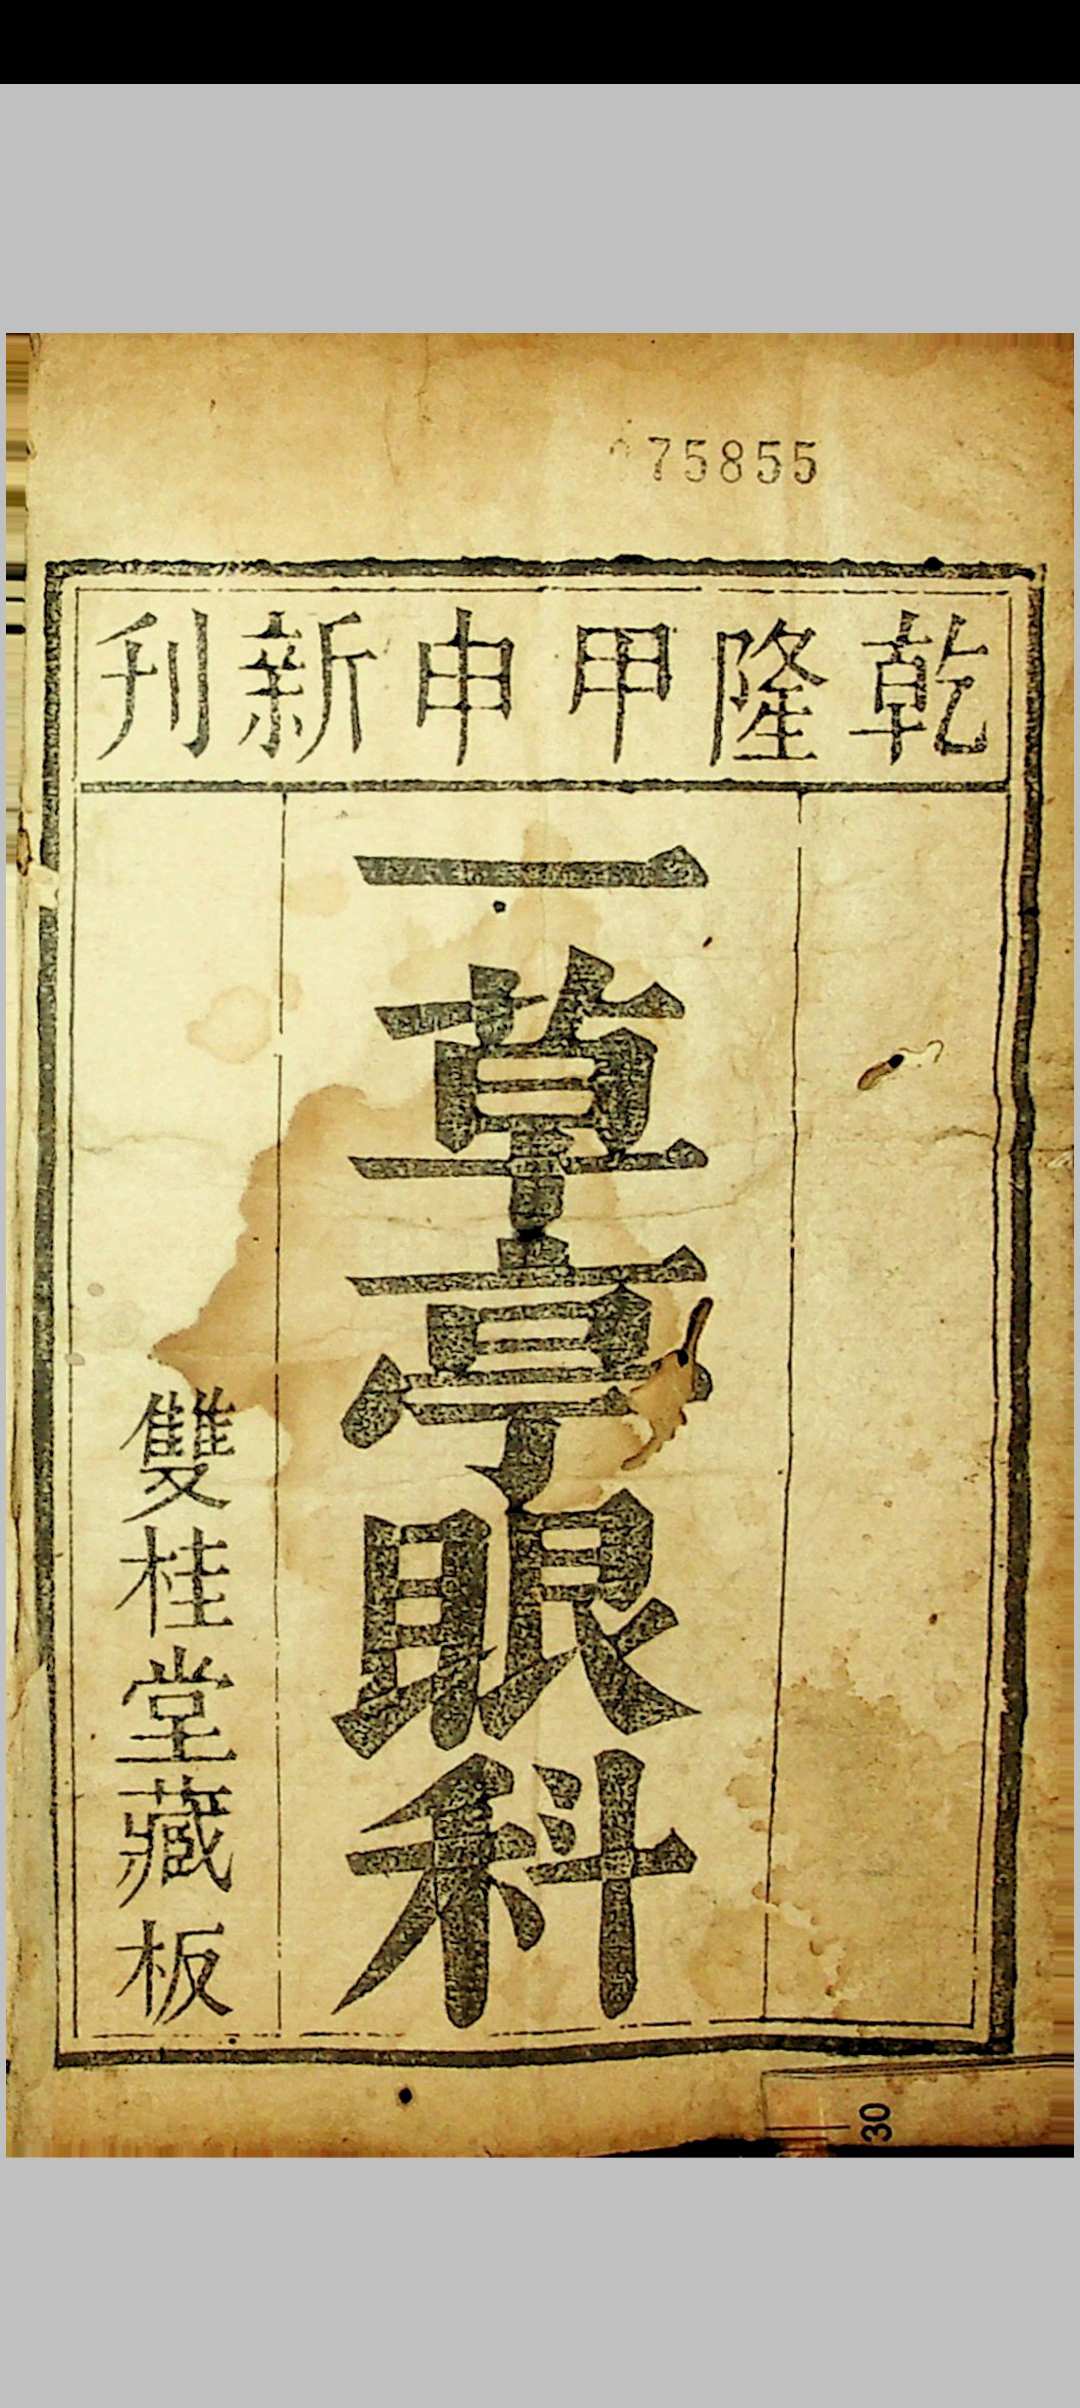 75855
乾隆甲申新刊
一草亭眼科
雙桂堂藏板
30